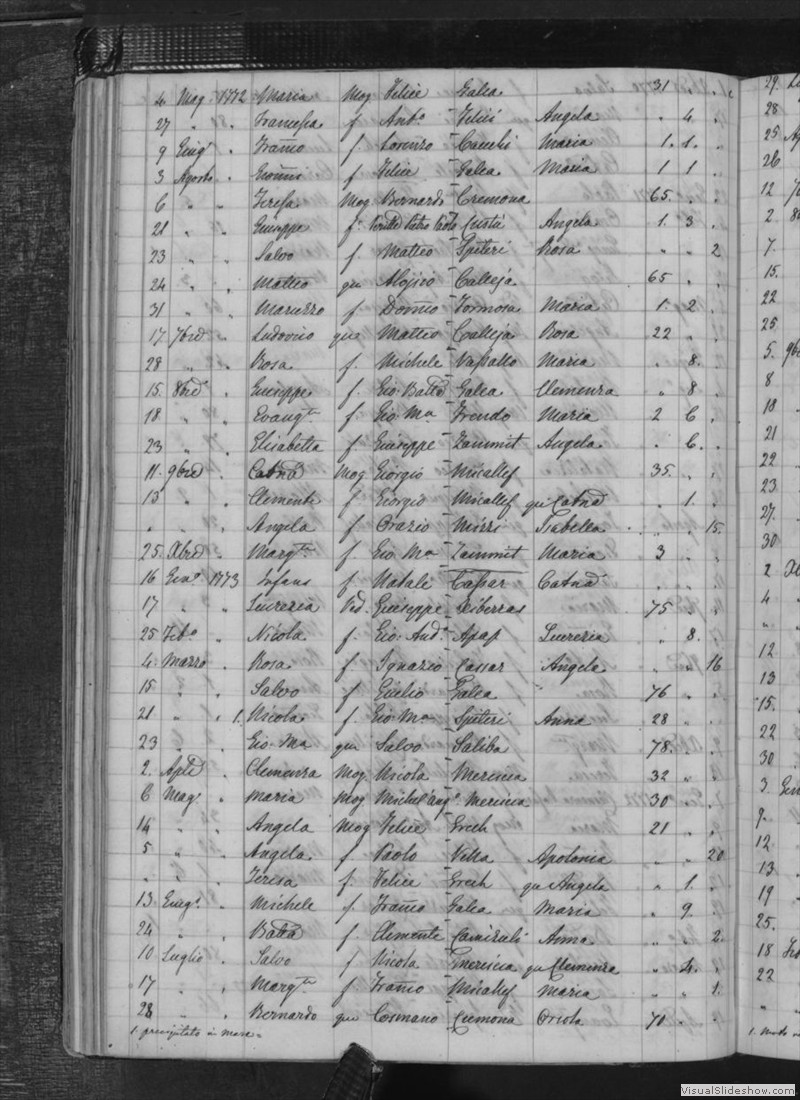 4 Mag. 1772 Maria Mog Felice Galea 31
27 " " Francesca f Ant.o Felici Angela " 4
9 Giug.o " Fran.co f Lorenzo Maria 1. 1.
3 Agosto " Gio f Felice Galea Maria 1 1
6 " " Teresa Mog Bernardo Cremona 65
21 " " Giuseppe f Pietro Paolo Angela 1. 3
23 " " Salvo f. Matteo Spiteri Rosa " " 2
24 " " Matteo qu Aloisio Calleja 65
31 " " Maruzzo f Dom.co Formosa Maria 1. 2
17 7bre " Ludovico qu Matteo Calleja Rosa 22
28 " " Rosa f. Michele Vassallo Maria " 8
15 8bre " Giuseppe f. Gio Batta Galea Clemenza " 8
18 " " Evang.ta f Gio M.a Frendo Maria 2 6
23 " " Elisabetta f Giuseppe Zammit Angela . 6.
11. 9bre " Cat.na Mog Giorgio Micallef 35
13 " " Clemente f Giorgio Micallef qu Cat.na " 1.
" " " Angela f Orazio Mizzi Isabella " " 15.
25. Xbre " Marg.ta f Gio M.a Zammit Maria 3
16 Gen.o 1773 Infans f Natale Caspar Cat.na
17 " " Lucrezia Ved. Giuseppe Sciberras 75
25 Feb.o " Nicola f. Gio And. Apap Lucrezia " 8.
4. Marzo " Rosa f. Ignazio Cassar Angela " " 16
15 " " Salvo f Giulio Galea " 76
21 " " 1. Nicola f. Gio M.a Spiteri Anna 28
23 " " Gio. M.a qu Salvo Saliba 78.
2. Aple " Clemenza Mog. Nicola Mercieca 32
6 Mag. " Maria Mog Michel'ang.o Mercieca 30
14 " " Angela Mog Felice Grech 21
5 " " Angela f Paolo Vella Apolonia " " 20
" " " Teresa f. Felice Grech qu Angela " 1.
13 Giug.o " Michele f. Fran.co Galea Maria " 9.
24 " " Batta f Clemente Camiruli Anna " " 2.
10 Luglio " Salvo f Nicola Mercieca qu Clemenza " 4.
17 " " Marg.ta f Fran.co Micallef Maria " " 1.
28 " " Bernardo qu Cosmano Cremona Orsola 70
1. precipitato in mare
29
28
25 Ag
26
12
2
7
15
22
25
5. 9b
8
18
21
22
23
27
30
2 X
4
"
12
13
15
22
30
3. Gen
9.
12
13
19
25.
18 Fe
22
VisualSlideshow.com